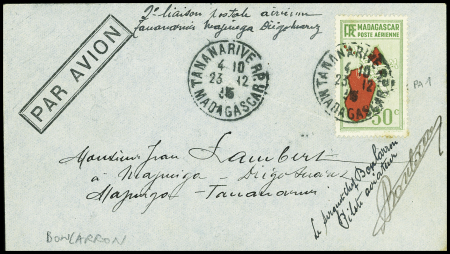 2e liaison postale aérienne
Tananarive Majunga Diégo Suarez
PAR AVION
TANANARIVE R.P.
4-10
23-12
35
MADAGASCAR
TANANARIVE R.P.
4-10
23-12
35
MADAGASCAR
RF MADAGASCAR
POSTE AÉRIENNE
50c
PA 1
Monsieur Jean Lambert
à Majunga - Diégo Suarez
Majunga - Tananarive
Le sergent chef Boncarron
Pilote aviateur
BONCARRON